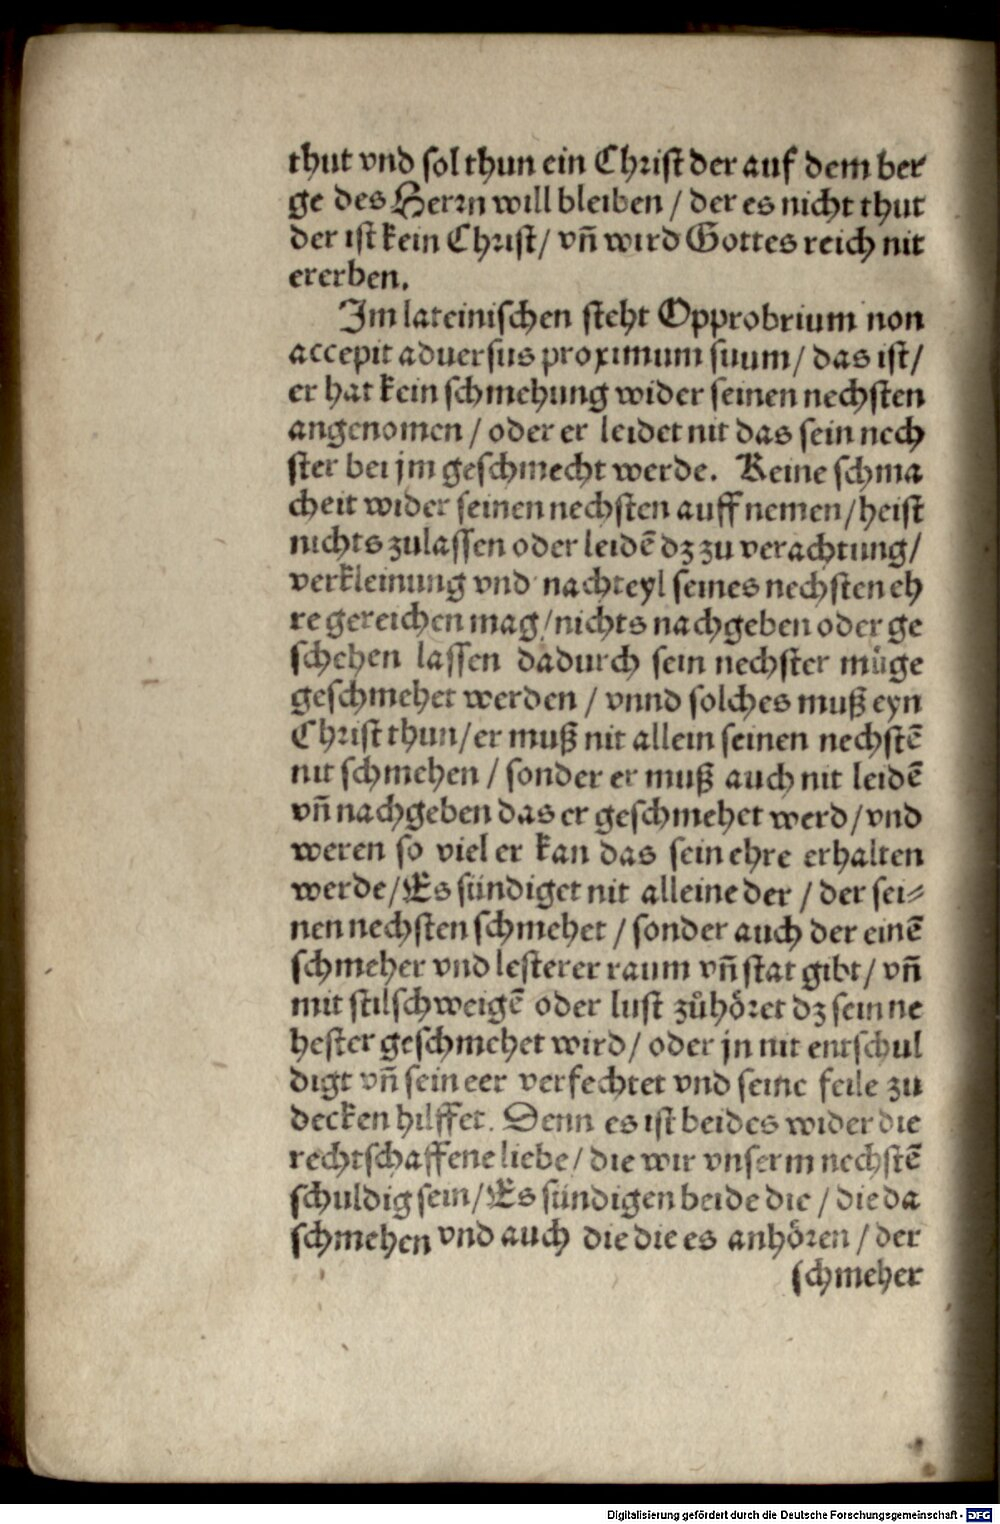 thut vnd sol thun ein Christ der auf dem ber
ge des Herrn will bleiben / der es nicht thut
der ist kein Christ / vñ wird Gottes reich nit
ererben.
Im lateinischen steht Opprobrium non
accepit aduersus proximum suum / das ist /
er hat kein schmehung wider seinen nechsten
angenomen / oder er leidet nit das sein nech
ster bei jm geschmecht werde. Keine schma
cheit wider seinen nechsten auff nemen / heist
nichts zulassen oder leidẽ dz zu verachtung /
verkleinung vnd nachteyl seines nechsten eh
re gereichen mag / nichts nachgeben oder ge
schehen lassen dadurch sein nechster müge
geschmehet werden / vnnd solches muß eyn
Christ thun / er muß nit allein seinen nechstẽ
nit schmehen / sonder er muß auch nit leidẽ
vñ nachgeben das er geschmehet werd / vnd
weren so viel er kan das sein ehre erhalten
werde / Es sündiget nit alleine der / der sei⸗
nen nechsten schmehet / sonder auch der einẽ
schmeher vnd lesterer raum vñ stat gibt / vñ
mit stilschweigẽ oder lust zůhöret dz sein ne
hester geschmehet wird / oder jn nit entschul
digt vñ sein eer verfechtet vnd seine feile zu
decken hilffet. Denn es ist beides wider die
rechtschaffene liebe / die wir vnserm nechstẽ
schuldig sein / Es sündigen beide die / die da
schmehen vnd auch die die es anhören / der
schmeher
Digitalisierung gefördert durch die Deutsche Forschungsgemeinschaft - DFG